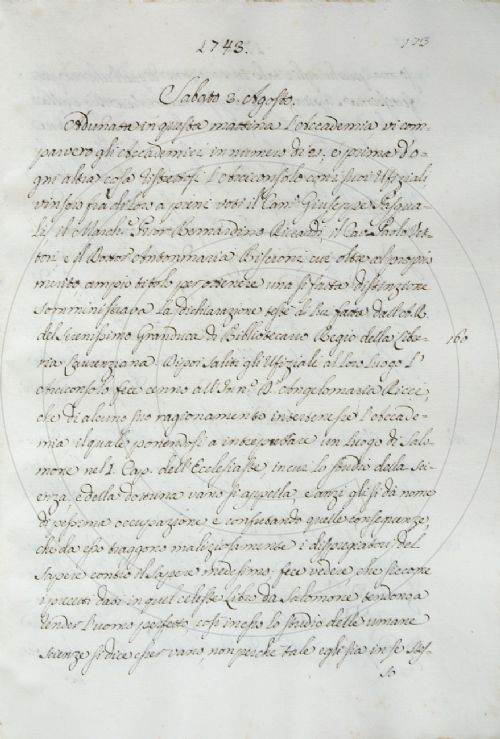 1743.
173
Sabato 3. Agosto.
Adunata in questa mattina l'Accademia vi com-
parvero gli Accademici in numero di 23, e prima d'o-
gni altra cosa ristrettosi l'Arciconsolo con i suoi Ufiziali
vinsolo fra di loro a pieni voti il Can.co Giuseppe Pasqua-
li, il March. Prior Bernardino Riccardi, il Cav. Paolo Vet-
tori e il Dottor Antommaria Biscioni cui oltre al proprio
merito, ampio titolo per ottenere una sì fatta distinzione
somministrava la dichiarazione fatta dall'A.R.
del Serenissimo Granduca di Bibliotecario Regio della Libe-
160
ria Laurenziana. Dipoi saliti gli Ufiziali al loro luogo l'
Arciconsolo fece cenno all' Angelomaria Ricci,
che di alcuno suo ragionamento intertenesse l'Accade-
mia il quale ponendosi a interpretare un luogo di Salo-
mone nel I. Cap. dell'Ecclesiaste, in cui lo studio della sci-
enza, e della dottrina vano si appella, e anzi gli si dà nome
di pessima occupazione e confutando quelle conseguenze,
che da ciò traggono maliziosamente i dispregiatori del
sapere contro il sapere medesimo fece vedere, che siccome
i precetti dati in quel celeste Libro da Salomone tendono a
render l'uomo perfetto, così in esso lo studio delle umane
scienze si dice esser vano, non perchè tale egli sia in se stes-
so